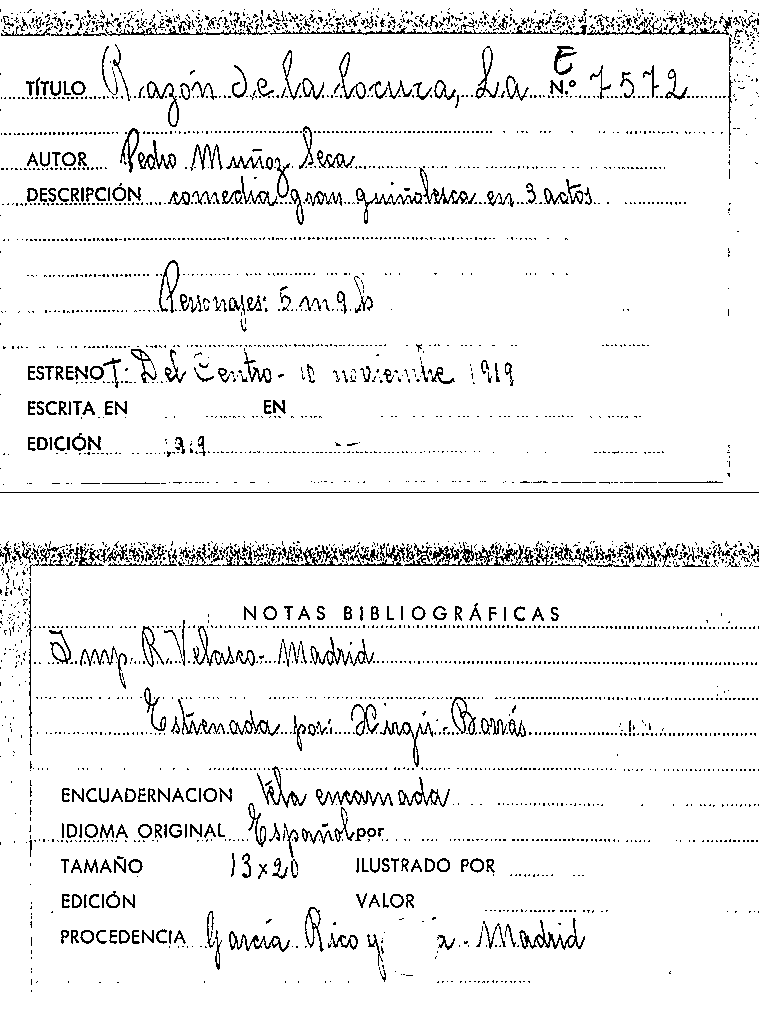 E
TÍTULO Razón de la locura, La N.º 7572
AUTOR Pedro Muñoz Seca
DESCRIPCIÓN comedia gran guiñolesca en 3 actos
Personajes: 5 m 9 h
ESTRENO T. Del Centro - 10 noviembre 1919
ESCRITA EN EN
EDICIÓN 1919
NOTAS BIBLIOGRÁFICAS
Imp. R. Velasco - Madrid
Estrenada por: Xirgú - Borrás
ENCUADERNACION tela encarnada
IDIOMA ORIGINAL Español por
TAMAÑO 13x20 ILUSTRADO POR
EDICIÓN VALOR
PROCEDENCIA García Rico y - Madrid